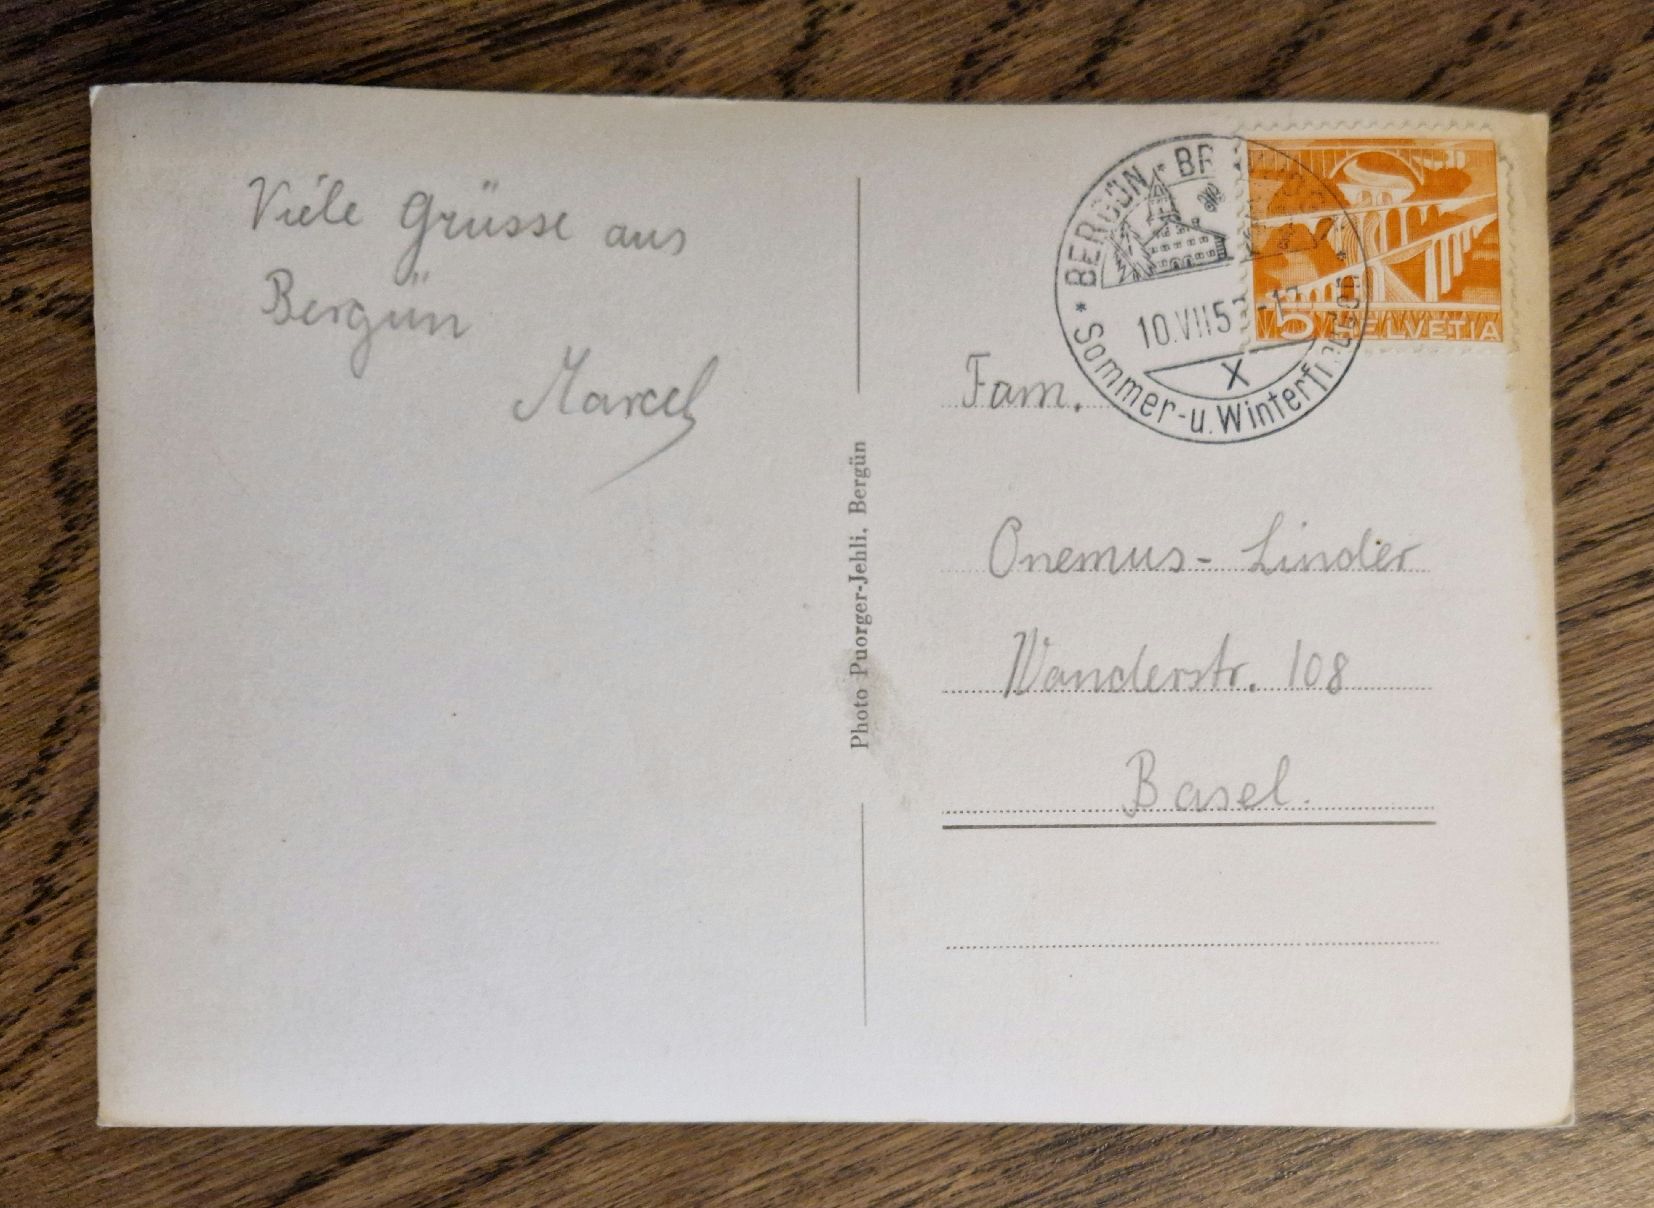 Viele Grüsse aus
Bergün
Marcel
Photo Puorger-Jehli, Bergün
* BERGÜN · BR
10.VII 5
X
* Sommer- u. Winterfi
5 HELVETIA
Fam.
Onemus - Linder
Wanderstr. 108
Basel.